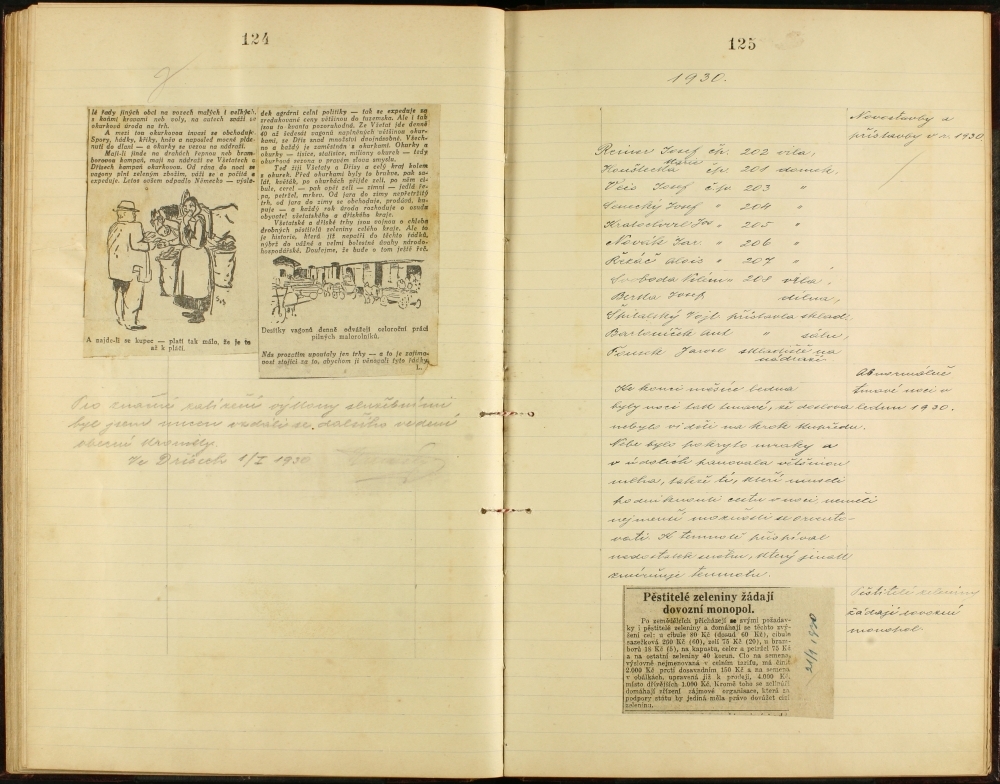 124
lé řady jiných obcí na vozech malých i velkých,
s koňmi kravami neb voly, na autech sváží se
okurková úroda na trh.
A mezi tou okurkovou invasí se obchoduje.
Spory, hádky, křiky, hněv a naposled mocné plácnutí do dlaní — a okurky se vezou na nádraží.
Mají-li jinde na drahách řepnou neb bramborovou kampaň, mají na nádraží ve Všetatech a
Dřísech kampaň okurkovou. Od rána do noci se
vagony plní zeleným zbožím, váží se a počítá a
expeduje. Letos ovšem odpadlo Německo —
A najde-li se kupec — platí tak málo, že je to
až k pláči.
dek agrární celní politiky — tak se expeduje za
produkované ceny většinou do tuzemska. Ale i tak
jsou to kvanta pozoruhodná. Ze Všetat jde denně
40 až šedesát vagonů naplněných většinou okurkami, ze Dřís snad množství dvojnásobné. Všechna a každý je zaměstnán s okurkami. Okurky a
okurky — tisíce, statisíce, miliony okurek — tedy
okurková sezona v pravém slova smyslu.
Teď žijí Všetaty a Dřísy a celý kraj kolem
s okurek. Před okurkami byly to brambor, pak salát, košťák, po okurkách přijde zelí, po něm cibule, cerel — pak opět zelí — zimní — jedlá řepa, petržel, mrkev. Od jara do zimy nepřetržitý
trh, od jara do zimy se obchoduje, prodává, kupuje — a každý rok úroda rozhoduje o osudu
obyvatel všetatského a dříského kraje.
Všetatské a dříské trhy jsou vojnou o chleba
drobných pěstitelů zeleniny celého kraje. Ale to
je historie, která již nepatří do těchto řádků,
nýbrž do vážné a velmi bolestné úvahy národohospodářské. Doufejme, že bude o tom ještě řeč.
Desítky vagonů denně odvážejí celoroční práci
pilných malorolníků.
Nás prozatím upoutaly jen trhy — a to je zajímavost stojící za to, abychom jí věnovali tyto řádky.
L.
Pro značné zatížení výkony služebními
byl jsem nucen vzdáti se dalšího vedení
obecní kroniky.
Ve Dřísech 1/I 1930
125
1930.
Novostavby a
přístavby v r. 1930
Reiner Josef čp. 202 vila,
Marie
čp. 201 domek,
Veis Josef čp. 203 "
Josef " 204 "
" 205 "
Novák Jar. " 206 "
Řezáč Alois " 207 "
Svoboda Vilém " 208 vila,
Berda Josef dílna,
Vojt. přístavba sklad.
Bartoníček Ant. "
Jarosl. skladiště na
nádraží
Abnormálně
tmavé noci v
lednu 1930.
Ke konci měsíce ledna
byly noci tak tmavé, že doslova
nebylo viděti na krok kupředu.
Nebe bylo pokryto mraky a
v údolích panovala většinou
mlha, takže ti, kteří museli
podniknouti cestu v noci neměli
nejmenší možnosti se oriento-
vati. K temnotě přispíval
nedostatek sněhu, který jinak
zmírňuje temnotu.
Pěstitelé zeleniny
žádají dovozní
monopol.
Pěstitelé zeleniny žádají
dovozní monopol.
Po zemědělcích přicházejí se svými požadavky i pěstitelé zeleniny a domáhají se těchto zvýšení cel: u cibule 80 Kč (dosud 60 Kč), cibule
sazečková 260 Kč (40), zelí 75 Kč (20), u brambor 38 Kč (5), na kapustu, celer a petržel 75 Kč
a na ostatní zeleniny 40 korun. Clo na semena,
výslovně nejmenovaná v celním tarifu, má činit
2.000 Kč proti dosavadním 150 Kč a na semena
v obálkách, upravená již k prodeji, 4.000 Kč,
místo dřívějších 1.000 Kč. Kromě toho se zelináři
domáhají zřízení zájmové organisace, která za
podpory státu by jediná měla právo dovážet cizí
zeleninu.
21/1 1930